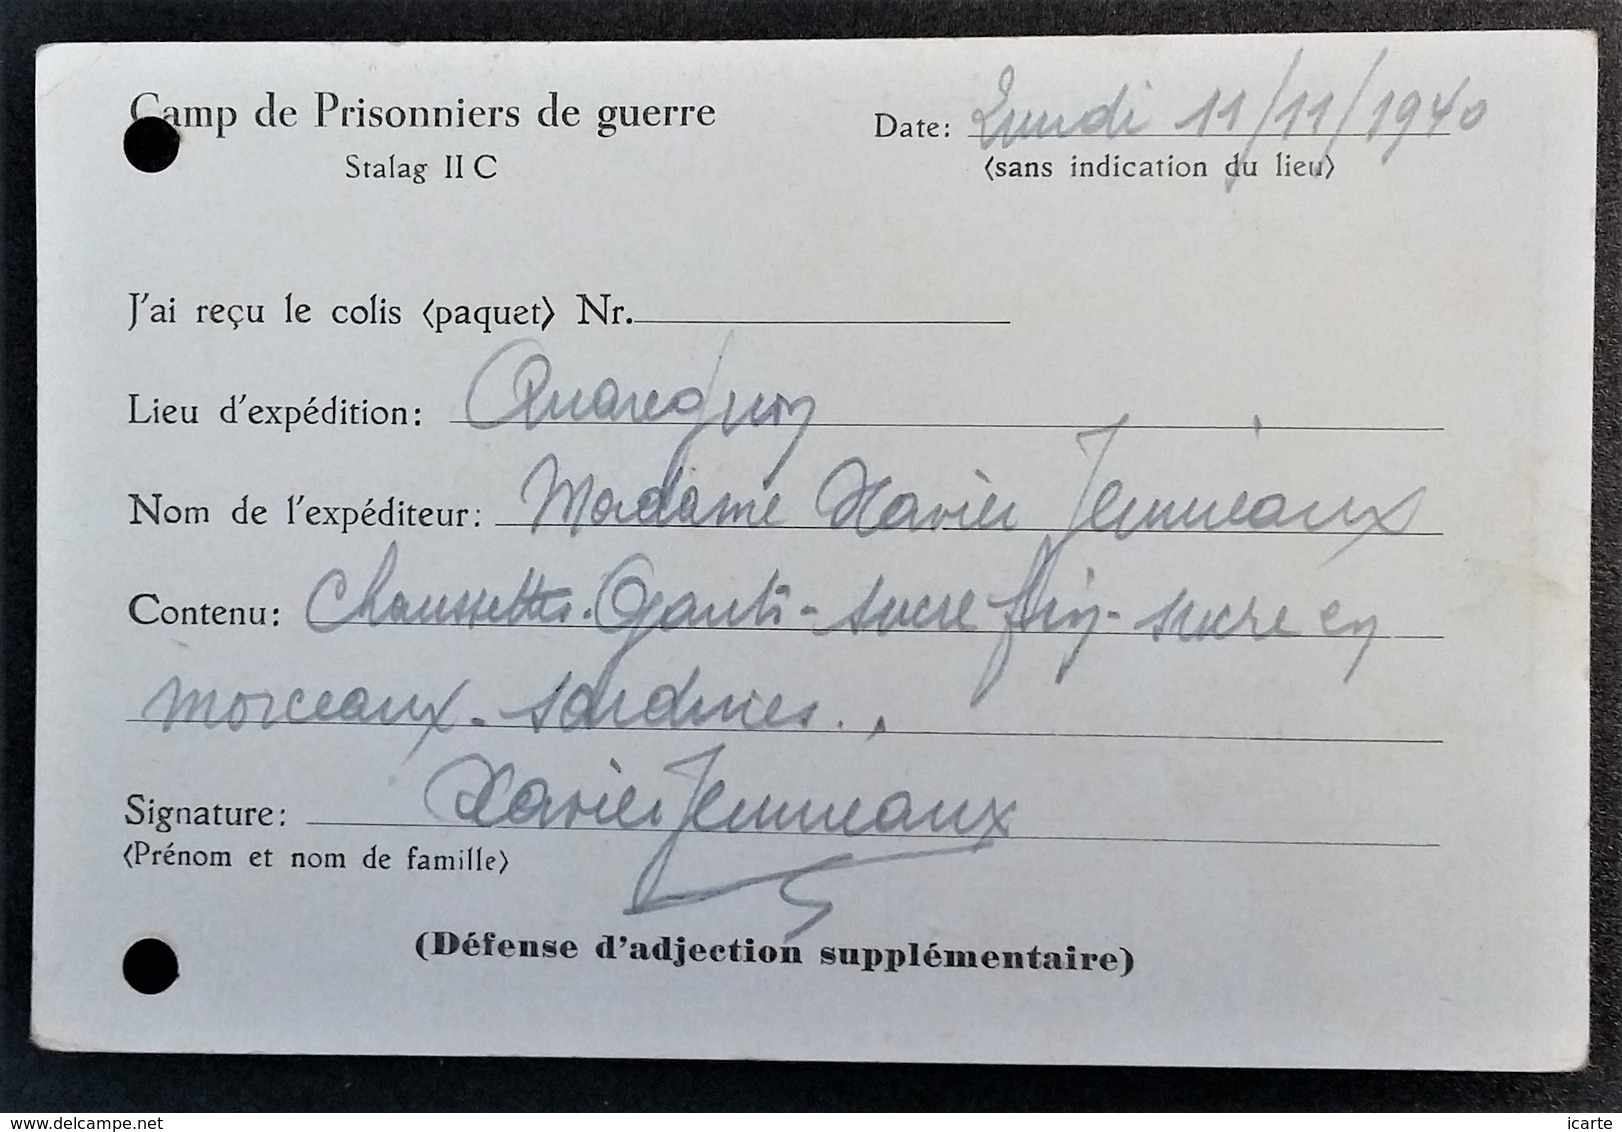 Camp de Prisonniers de guerre
Stalag II C
Date: Lundi 11/11/1940
‹sans indication du lieu›
J'ai reçu le colis ‹paquet› Nr.
Lieu d'expédition: Quaregnon
Nom de l'expéditeur: Madame Xavier Jeumeaux
Contenu: Chaussettes - Gants - sucre fin - sucre en
morceaux - sardines..
Signature: Xavier Jeumeaux
‹Prénom et nom de famille›
(Défense d'adjection supplémentaire)
delcampe.net
icarte